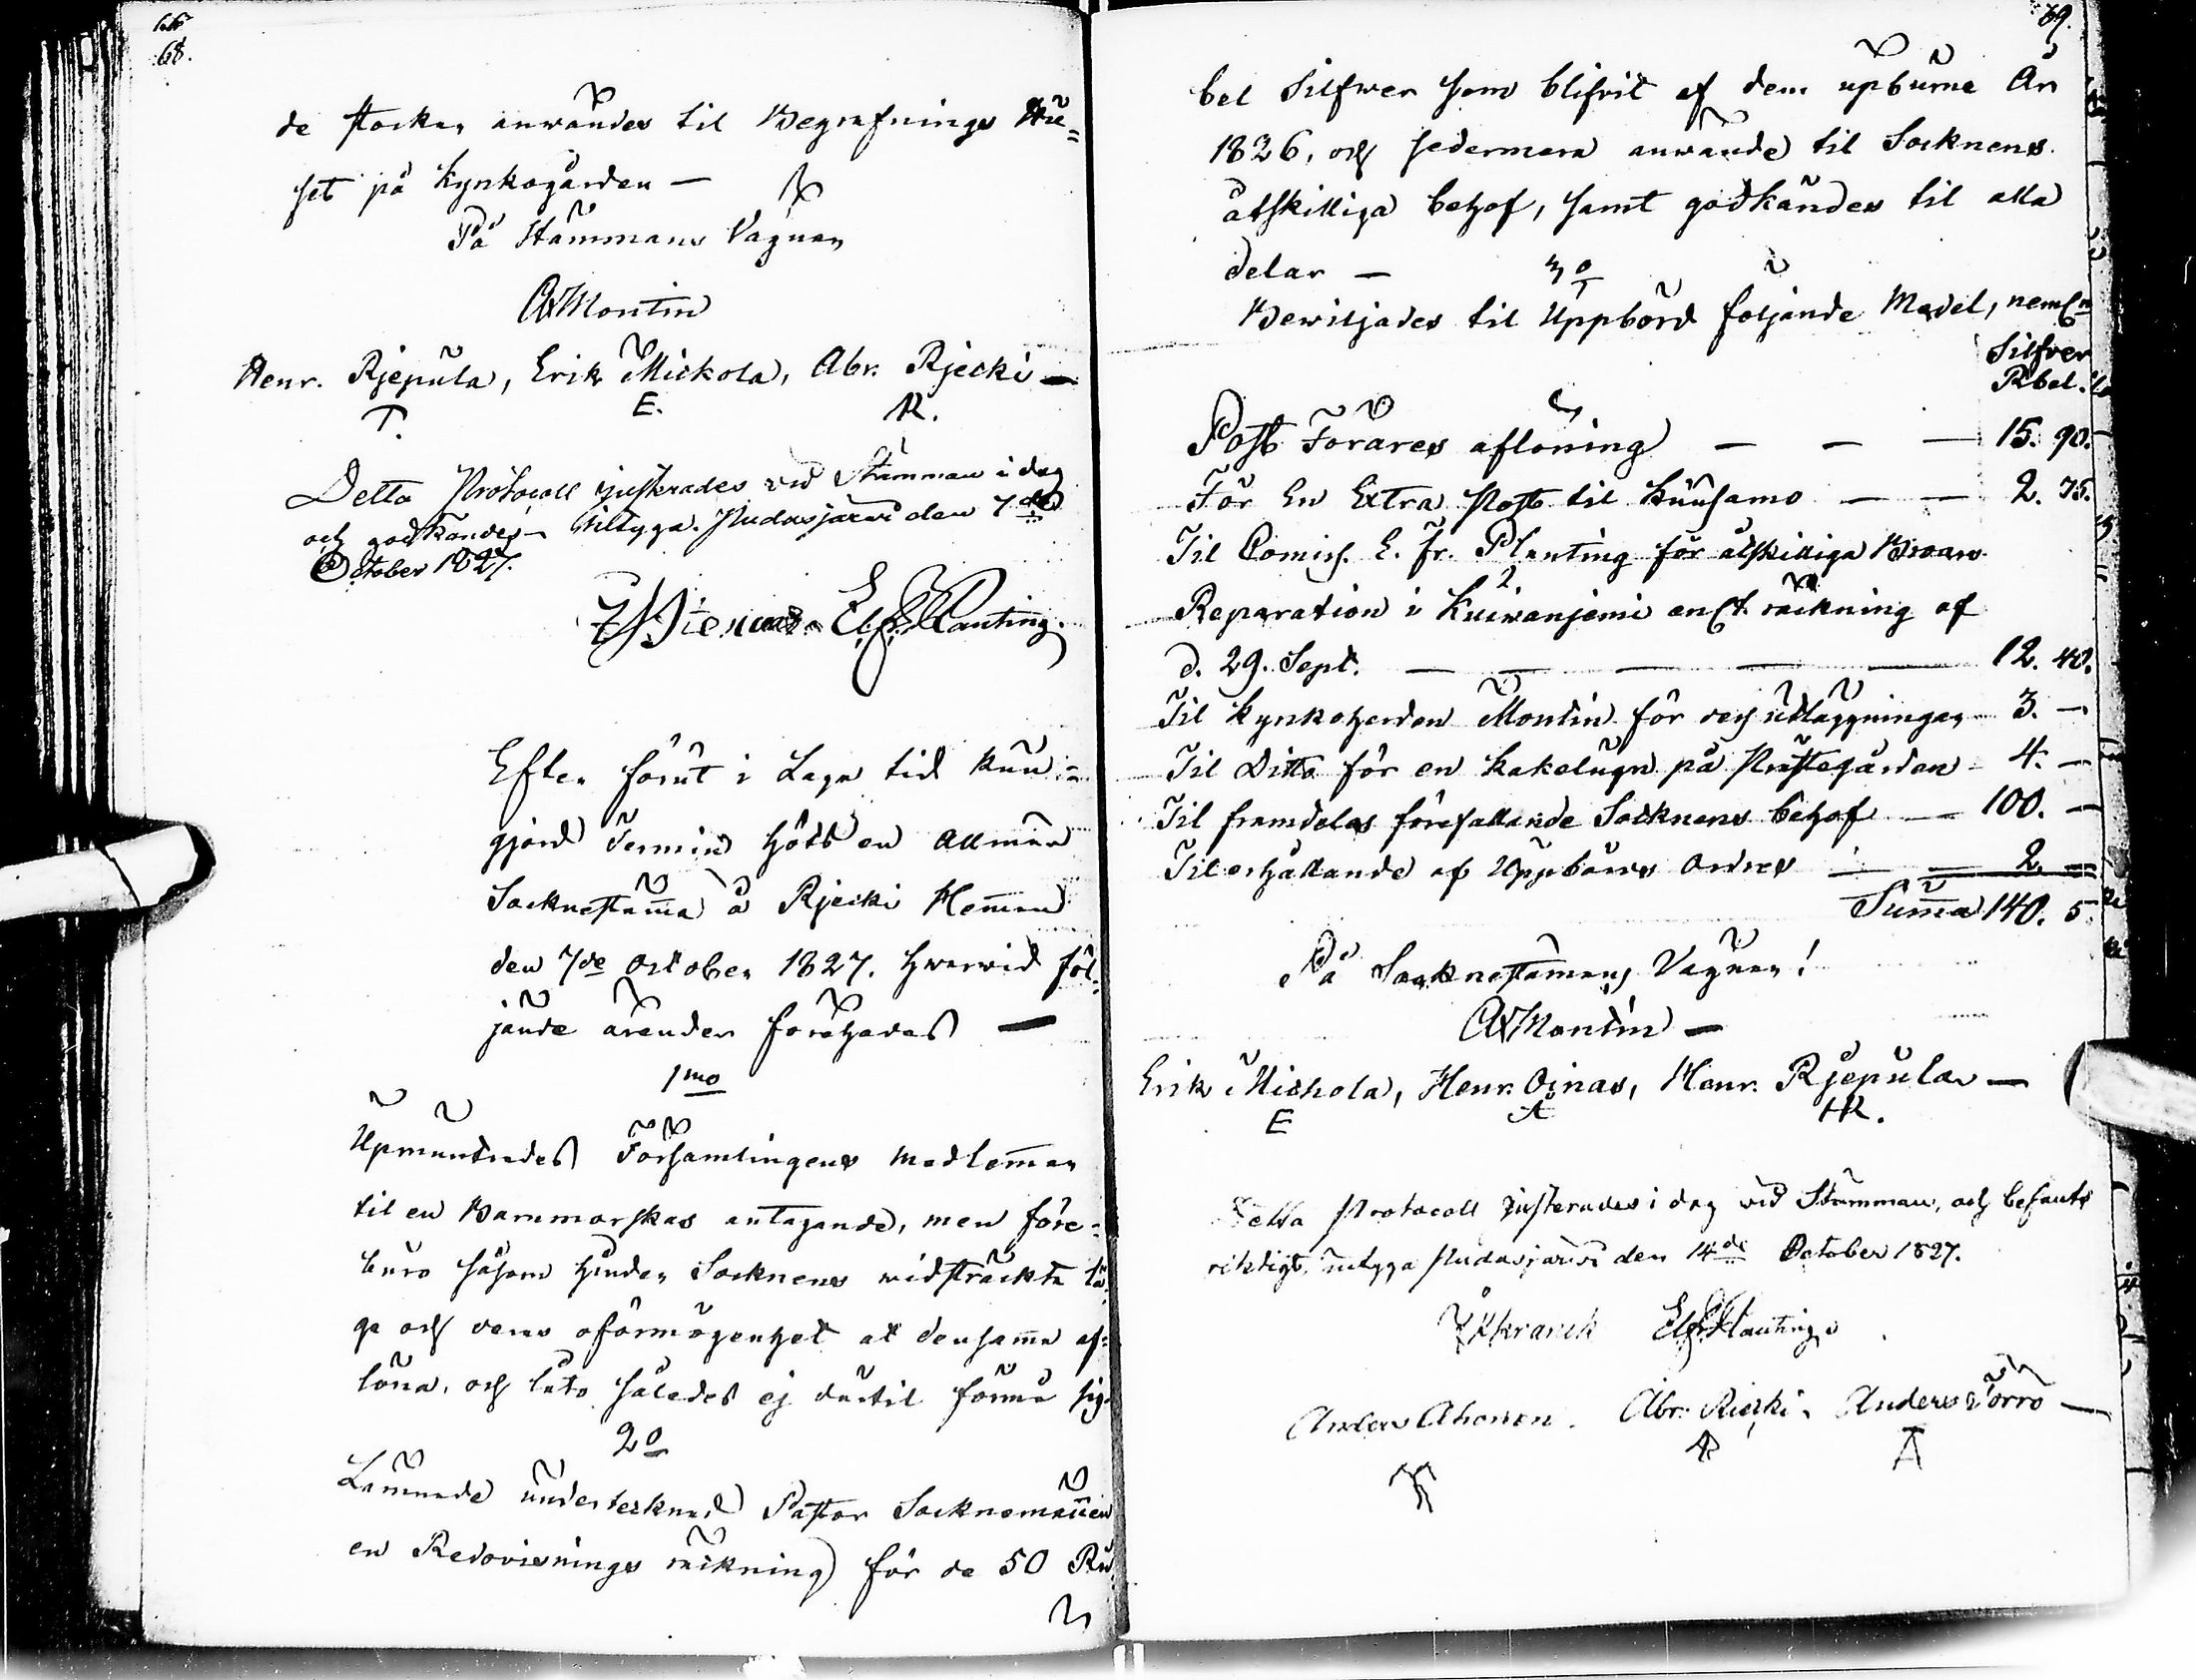 68.
de stockar användes til Begrafnings Hu=
set på Kyrkogården —
På Stämmans Vägnar
Montin
Henr. Rjepula, Erik Mickola, Abr. Rjecki —
E. R.
Detta Protocoll justerades vid Stämman i dag
och godkändes, Pudasjärvi den 7de
October 1827.
Planting.
Efter förut i Laga tid kun=
gjord Termin hölts en Allmän
Sockneståm̄a å Rjecki Hem̄an
den 7de October 1827. hwarvid föl=
jande ärender förehades —
1mo
Upmuntrades Församlingens medlem̄ar
til en Barnmorskas antagande, men före=
buro såsom hinder Socknens widsträckta lä
ge och deras oförmögenhet at densam̄a af=
löna, och läto således ej därtil förmå sig
2o
Lämnade undertecknad Pastor Socknemännen
en Redovisnings räkning för de 50 Ru
69.
bel Silfwer som blifvit af dem upburne År
1826, och sedermera använde til Socknens
åtskilliga behof, samt godkändes til alla
delar —
3o
Bewiljades til Uppbörd följande Medel, neml:n
Silfver
Rbel.
Post Förares aflöning — — — 15. 90.
För En Extra Post til Kuusamo — — 2. 75.
Til Comiss. E. Fr. Planting för åtskilliga Broars
Reparation i Kuiwaniemi enl:t räkning af
d. 29. Sept. — — — — — 12. 40.
Til Kyrkoherden Montin för des utläggningar 3. —
Til Ditto för en Kakelugn på Prästegården — 4. —
Til framdeles förefallande Socknens behof — 100. —
Til erhållande af Uppbörds Ordres — — 2. —
Sum̄a 140. 5.
På Sockneståmans Vägnar!
Montin —
Erik Mickola, Henr. Oinas, Henr. Rjepula —
E A HR.
Detta Protocoll justerades i dag vid Stämman, och befants
riktigt, intyga Pudasjärvi den 14de October 1827.
Planting
Anders Ahonen. Abr. Riecki, Anders Törrö —
A